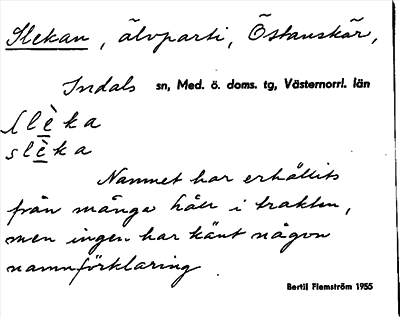 Slekan, älvparti, Östanskär,
Indals sn, Med. ö. doms. tg, Västernorrl. län
slè̱ka
slè̱ka
Namnet har erhållits
från många håll i trakten,
men ingen har känt någon
namnförklaring.
Bertil Flemström 1955